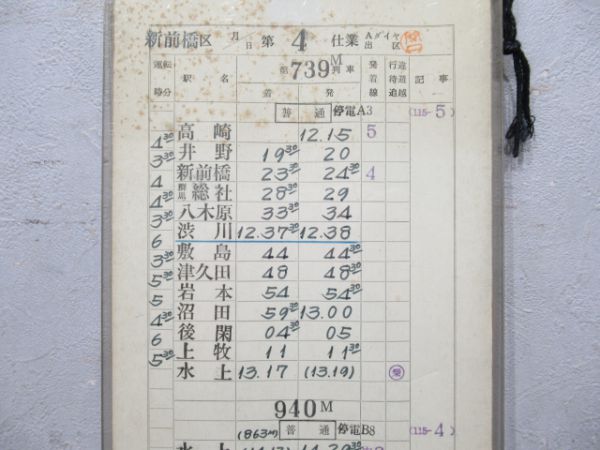 新前橋区 月日 第 4 仕業 Aダイヤ出区
運転時分 駅名 第739M列車 着 発 発着線 行違待避追越 記事
普通 停電A3 (115-5)
高崎 12.15 5
4 30 井野 19 30 20
3 30 新前橋 23 30 24 30 4
4 群馬総社 28 30 29
4 30 八木原 33 30 34
3 30 渋川 12.37 30 12.38
6 敷島 44 44 30
3 30 津久田 48 48 30
5 30 岩本 54 54 30
5 沼田 59 30 13.00
4 30 後閑 04 30 05
6 上牧 11 11 30
5 30 水上 13.17 (13.19)
940M
(863M) 普通 停電B8 (115-4)
水上